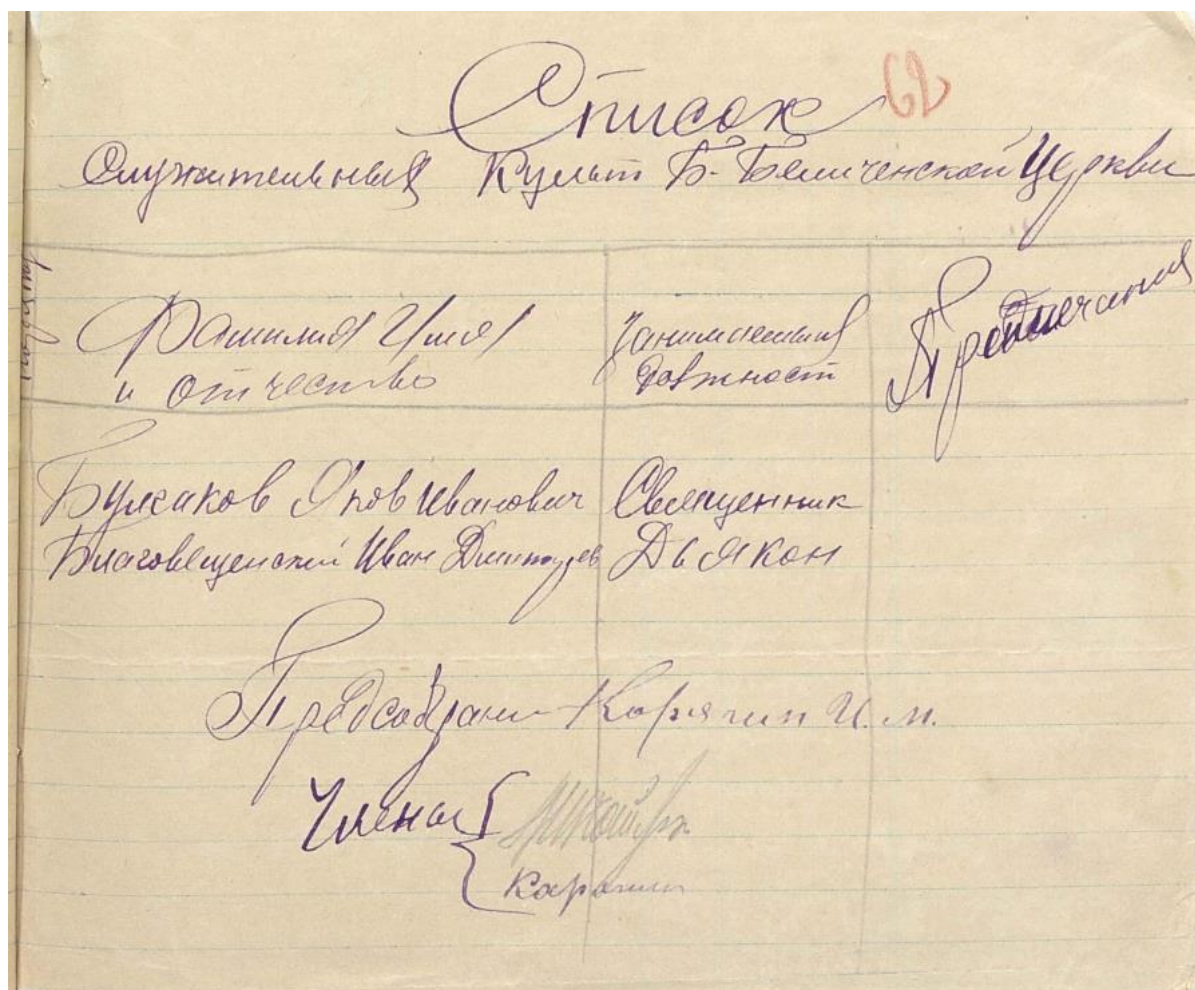 Список 62
Служительныя Культ Б-Беличенской Церкви
Фамилия Имя
и отчество
Занимаемыя
должност
Булгаков Яков Иванович Священник
Благовещенский Иван Дмитриев Дьякон
Карягин И. М.
Члены